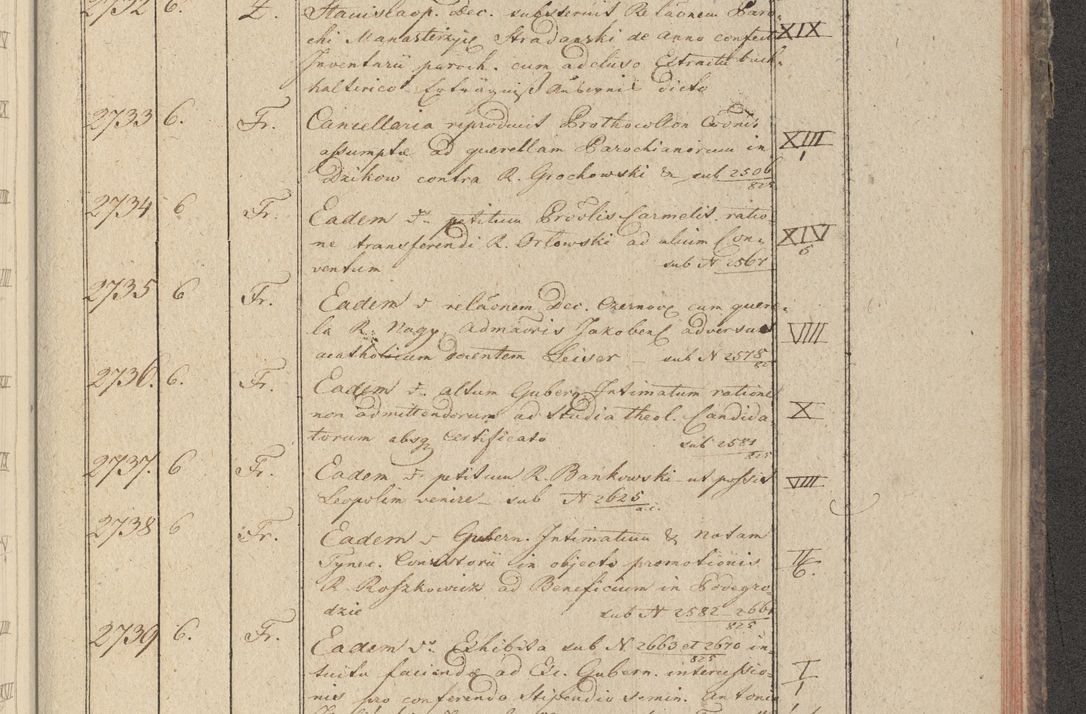 2732 6. Z. Stanislaop. Dec. substernit Relãonem Paro-
chi Manasterzyc Stradanski de Anno confecti XIX
Inventarii paroch. cum adcluso Extractu buch-
halterico
2733 6. Fr. Cancellaria reproducit Prothocollon Cõonis
assumptae ad querellam Parochianorum in XIII 1
Dzikow contra R. Grochowski &c sub 2506/825
2734 6 Fr. Eadem petitum Prõolis Carmelit. ratio-
ne transferendi R. Orlowski ad alium Con- XIV 5
ventum sub N 2567
2735 6 Fr. Eadem relãonem Dec. Czernov cum quere-
la R. Nagy, Admãoris Jakobens adversus VIII
acatholicum docentem Leiser – sub N 2578/825
2736. 6. Fr. Eadem altum Gubern Intimatum ratione
non admittendorum ad studia theol. Candida- X
torum absq certificato sub 2581/825
2737. 6 Fr. Eadem petitum R. Bankowski – ut possit VIII
Leopolim venire – sub N 2625/a.c.
2738 6 Fr. Eadem Gubern. Intimatum & Notam
Tynec. Consistorii in objecto promotionis
R Roszkowicz ad Beneficium in Podegro- 6.
dzie sub N 2582 2661/825
2739 6. Fr. Eadem Exhibita sub N 2663 et 2670/825 in-
tuitu faciendae ad Exc. Gubern. intercessio- I 1
nis pro conferenda Stipendio semin. Antonio